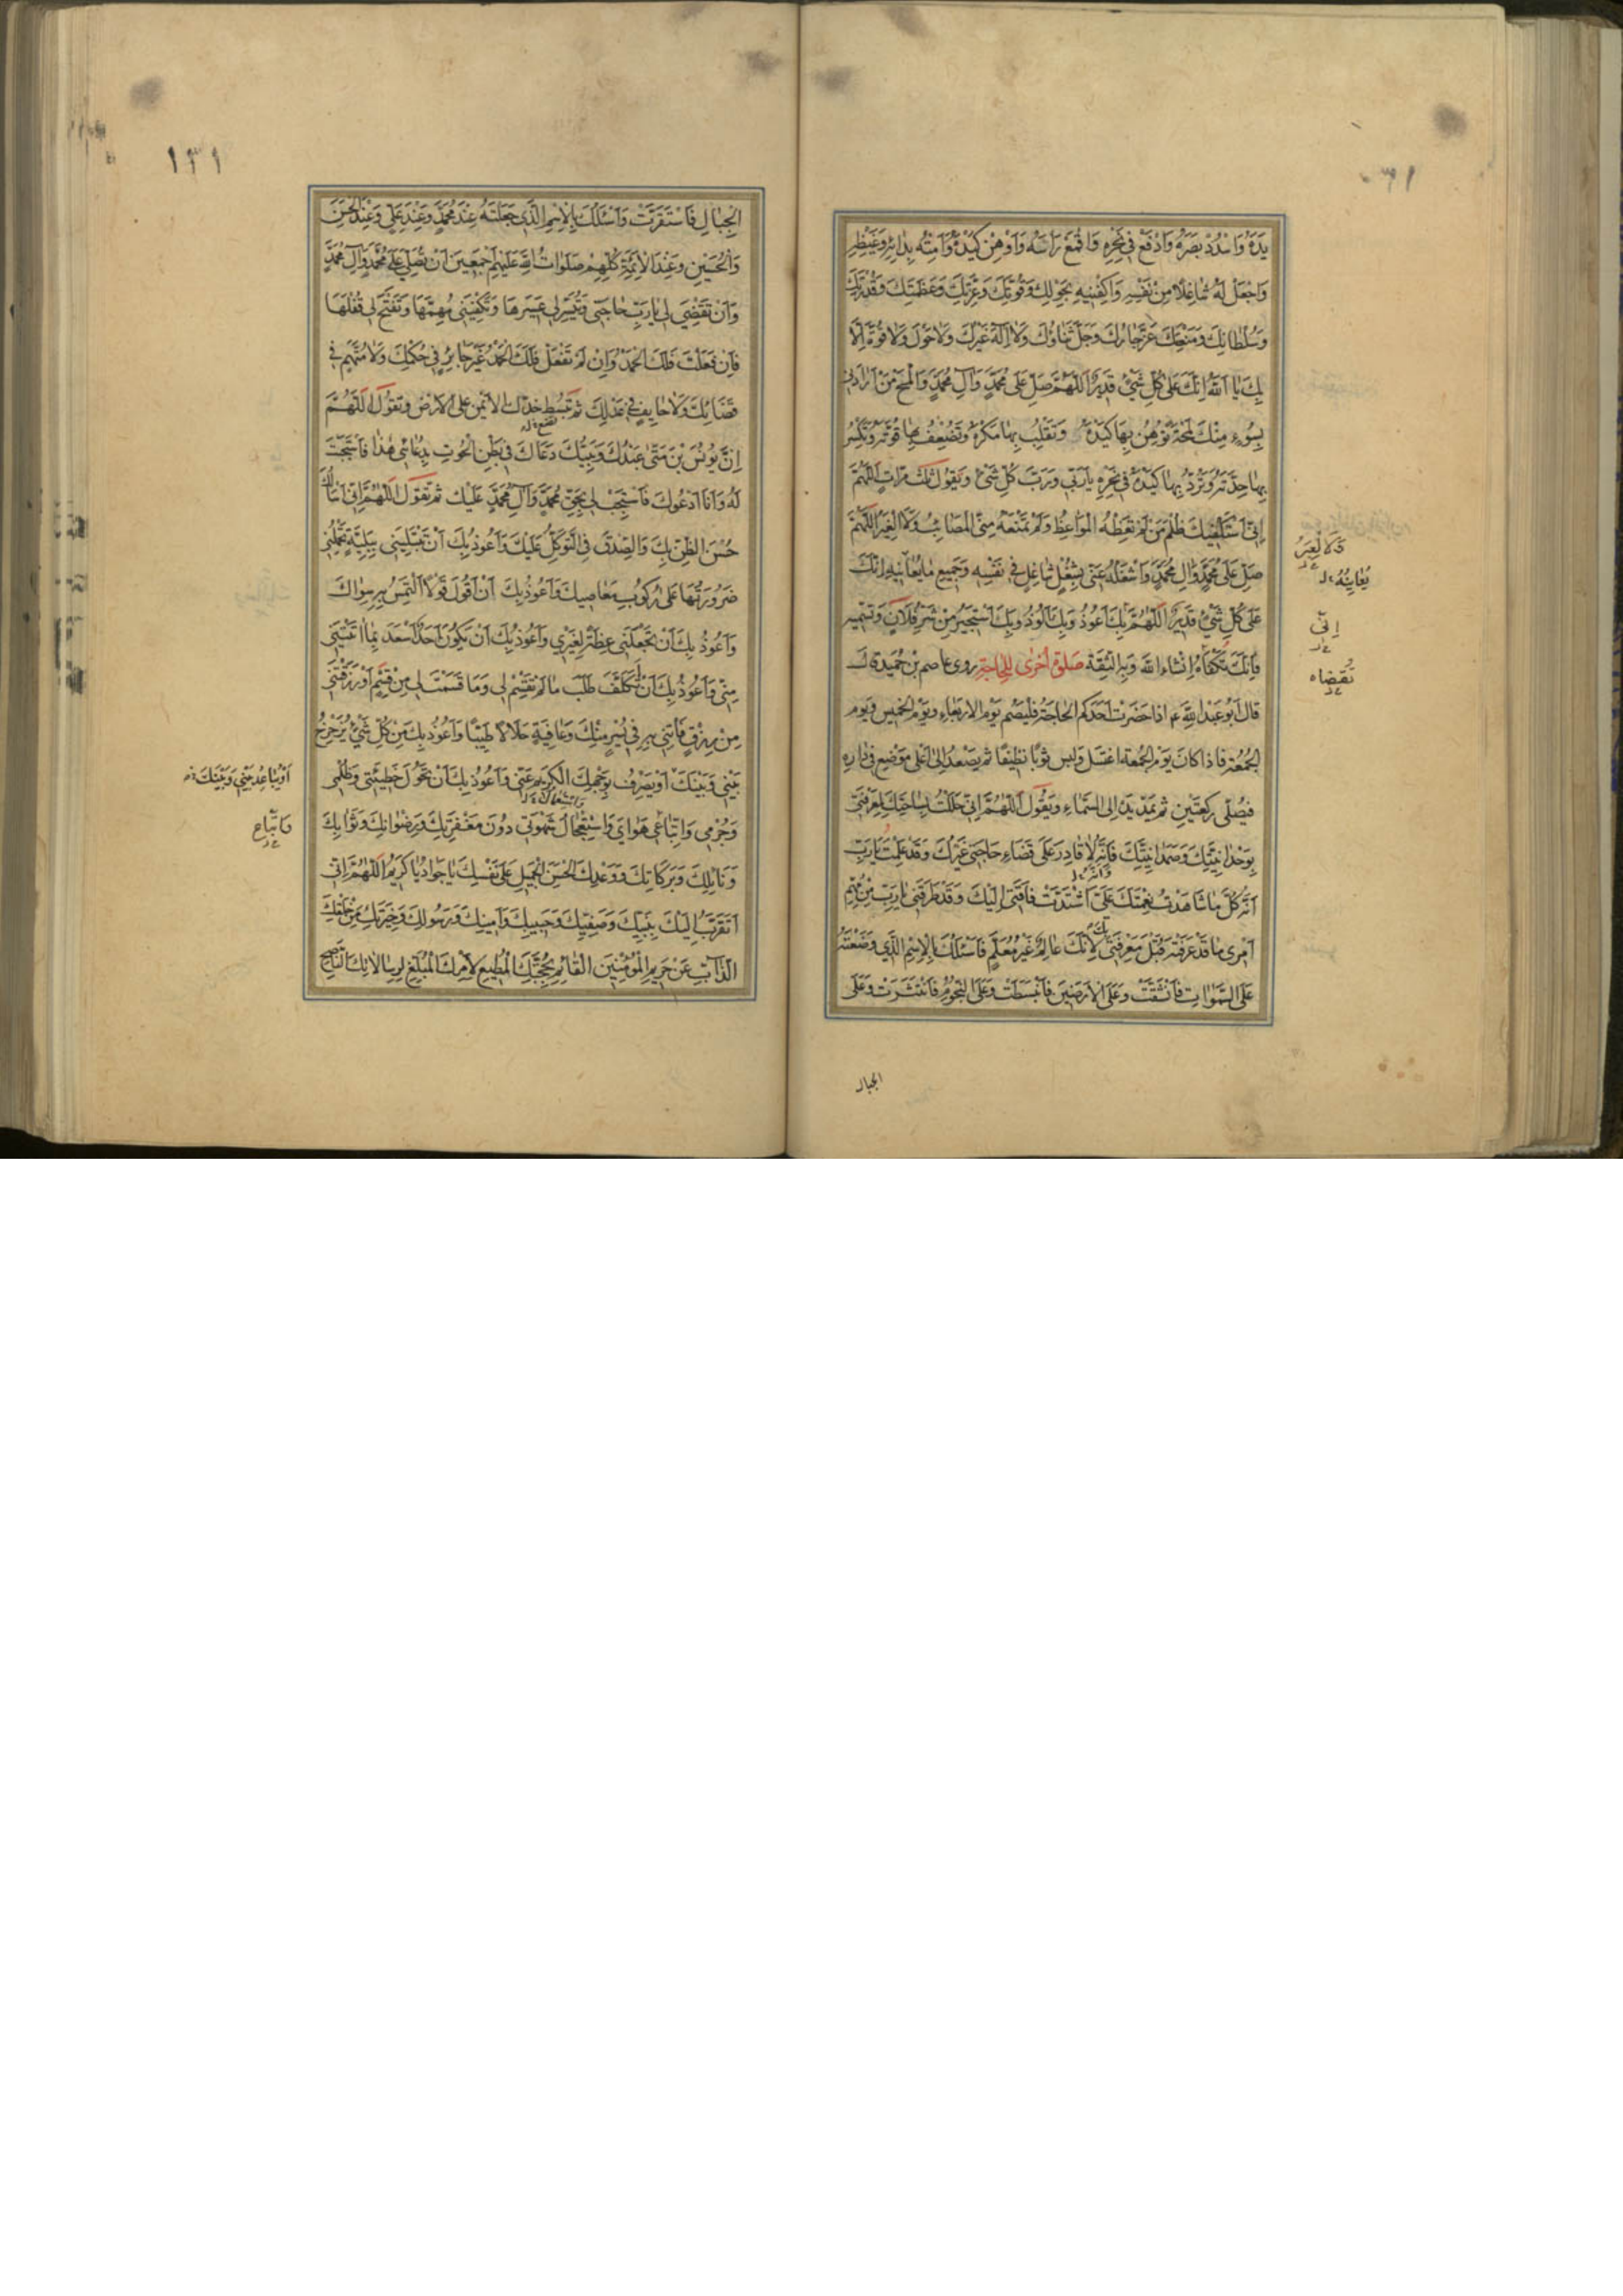 يَدَهُ وَاسْدُدْ بَصَرَهُ وَادْفَعْ فِي نَحْرِهِ وَاقْمَعْ رَأسَهُ وَاَوْهِنْ كَيْدَهُ وَاَمِتْهُ بِدائِهِ وَغَيْظِهِ
وَاجْعَلْ لَهُ شاغِلًا مِنْ نَفْسِهِ وَاكْفِنيهِ بِحَوْلِكَ وَقُوَّتِكَ وَعِزَّتِكَ وَعَظَمَتِكَ وَقُدْرَتِكَ
وَسُلْطانِكَ وَمَنْعَتِكَ عَزَّ جارُكَ وَجَلَّ ثَناؤُكَ وَلا اِلهَ غَيْرُكَ وَلا حَوْلَ وَلا قُوَّةَ اِلّا
بِكَ يا اَللهُ اِنَّكَ عَلى كُلِّ شَيْءٍ قَديرٌ اَللّهُمَّ صَلِّ عَلى مُحَمَّدٍ وَآلِ مُحَمَّدٍ وَالْمَحْ مَنْ اَرادَني
بِسُوءٍ مِنْكَ لَمْحَةً تُوهِنُ بِها كَيْدَهُ وَتَقْلِبُ بِها مَكْرَهُ وَتُضْعِفُ بِها قُوَّتَهُ وَتَكْسِرُ
بِها حِدَّتَهُ وَتَرُدُّ بِها كَيْدَهُ في نَحْرِهِ يا رَبّي وَرَبَّ كُلِّ شَيْءٍ وَتَقُولُ ثَلثَ مَرّاتٍ اَللّهُمَّ
اِنّي اَسْتَكْفيكَ ظُلْمَ مَنْ لَمْ تَعِظْهُ الْمَواعِظُ وَلَمْ تَمْنَعْهُ مِنِّي الْمَصائِبُ وَلَا الْغِيَرُ اَللّهُمَّ
صَلِّ عَلى مُحَمَّدٍ وَآلِ مُحَمَّدٍ وَاشْغَلْهُ عَنّي بِشُغْلٍ شاغِلٍ في نَفْسِهِ وَجَميعِ ما يُعانيهِ اِنَّكَ
عَلى كُلِّ شَيْءٍ قَديرٌ اَللّهُمَّ بِكَ اَعُوذُ وَبِكَ اَلُوذُ وَبِكَ اَسْتَجيرُ مِنْ شَرِّ فُلانٍ وَتُسَمّيهِ
فَاِنَّكَ تُكْفاهُ اِنْ شاءَ اللهُ وَبِهِ الثِّقَةُ صَلوةٌ اُخْرى لِلْحاجَةِ روى عاصم بن حُمَيد قال
قالَ اَبُو عَبْدِ اللهِ ع اذا حَضَرَتْ اَحَدَكُم الحاجَةُ فَلْيَصُم يَوْمَ الاربَعاءِ ويَوْمَ الخَميس وَيَوم
الجُمُعَة فاذا كانَ يَوْم الجُمُعَة اغتَسَلَ وَلبِسَ ثَوْبًا نَظيفًا ثم يَصْعَد اِلى اَعْلى مَوْضِع في دارِهِ
فيُصَلّي رَكعتَيْنِ ثم يَمُدّ يَدَيه اِلى السَّماءِ وَيَقُول اَللّهُمَّ اِنّي حَلَلْتُ بِساحَتِكَ لِمَعْرِفَتي
بِوَحْدانِيَّتِكَ وَصَمَدانِيَّتِكَ فَاِنَّهُ لا قادِرَ عَلى قَضاءِ حاجَتي غَيْرُكَ وَقَدْ عَلِمْتُ يا رَبِّ
اَنَّهُ كُلَّ ما شاهَدْتُ نِعْمَتَكَ عَلَيَّ اشْتَدَّتْ فاقَتي اِلَيْكَ وَقَدْ طَرَقَني يا رَبِّ مِنْ مُهِمِّ
اَمْري ما قَدْ عَرَفْتَهُ قَبْلَ مَعْرِفَتي لِاَنَّكَ عالِمٌ غَيْرُ مُعَلَّمٍ فَاَسْئَلُكَ بِالْاِسْمِ الَّذي وَضَعْتَهُ
عَلَى السَّمواتِ فَانْشَقَّتْ وَعَلَى الْاَرَضينَ فَانْبَسَطَتْ وَعَلَى النُّجُومِ فَانْتَثَرَتْ وَعَلَى
وَلَا الْغِيَرُ
يُعايِنُهُ
اِنّي
تَقْضاه
الجبال
١٣١
الْجِبالِ فَاسْتَقَرَّتْ وَاَسْئَلُكَ بِالْاِسْمِ الَّذي جَعَلْتَهُ عِنْدَ مُحَمَّدٍ وَعِنْدَ عَلِيٍّ وَعِنْدَ الْحَسَنِ
وَالْحُسَيْنِ وَعِنْدَ الْاَئِمَّةِ كُلِّهِمْ صَلَواتُ اللهِ عَلَيْهِمْ اَجْمَعينَ اَنْ تُصَلِّيَ عَلى مُحَمَّدٍ وَآلِ مُحَمَّدٍ
وَاَنْ تَقْضِيَ لي يا رَبِّ حاجَتي وَتُيَسِّرَ لي عَسيرَها وَتَكْفِيَني مُهِمَّها وَتَفْتَحَ لي قُفْلَها
فَاِنْ فَعَلْتَ فَلَكَ الْحَمْدُ وَاِنْ لَمْ تَفْعَلْ فَلَكَ الْحَمْدُ غَيْرَ جائِرٍ في حُكْمِكَ وَلا مُتَّهَمٍ في
قَضائِكَ وَلا حايِفٍ في عَدْلِكَ ثم تَبْسُط خَدَّك الايْمَن عَلى الارض وَتَقُول اَللّهُمَّ
اِنَّ يُونُسَ بْنَ مَتّى عَبْدُكَ وَنَبِيُّكَ دَعاكَ في بَطْنِ الْحُوتِ بِدُعائي هذا فَاسْتَجَبْتَ
لَهُ وَاَنَا اَدْعُوكَ فَاسْتَجِبْ لي بِحَقِّ مُحَمَّدٍ وَآلِ مُحَمَّدٍ عَلَيْكَ ثم تَقُول اَللّهُمَّ اِنّي اَسْاَلُكَ
حُسْنَ الظَّنِّ بِكَ وَالصِّدْقَ فِي التَّوَكُّلِ عَلَيْكَ وَاَعُوذُ بِكَ اَنْ تَبْتَلِيَني بِبَلِيَّةٍ تَحْمِلُني
ضَرُورَتُها عَلى رُكُوبِ مَعاصيكَ وَاَعُوذُ بِكَ اَنْ اَقُولَ قَوْلًا اَلْتَمِسُ بِهِ سِواكَ
وَاَعُوذُ بِكَ اَنْ تَجْعَلَني عِظَةً لِغَيْري وَاَعُوذُ بِكَ اَنْ يَكُونَ اَحَدٌ اَسْعَدَ بِما اتَيْتَني
مِنّي وَاَعُوذُ بِكَ اَنْ اَتَكَلَّفَ طَلَبَ ما لَمْ تَقْسِمْ لي وَما قَسَمْتَ لي مِنْ قِسْمٍ اَوْ رَزَقْتَني
مِنْ رِزْقٍ فَأْتِني بِهِ في يُسْرٍ مِنْكَ وَعافِيَةٍ حَلالًا طَيِّبًا وَاَعُوذُ بِكَ مِنْ كُلِّ شَيْءٍ يُزَحْزِحُ
بَيْني وَبَيْنَكَ اَوْ يَصْرِفُ بِوَجْهِكَ الْكَريمِ عَنّي وَاَعُوذُ بِكَ اَنْ تَحُولَ خَطيئَتي وَظُلْمي
وَجُرْمي وَاتِّباعي هَوايَ وَاسْتِعْجالَ شَهْوَتي دُونَ مَغْفِرَتِكَ وَرِضْوانِكَ وَثَوابِكَ
وَنائِلِكَ وَبَرَكاتِكَ وَوَعْدِكَ الْحَسَنِ الْجَميلِ عَلى نَفْسِكَ يا جَوادُ يا كَريمُ اَللّهُمَّ اِنّي
اَتَقَرَّبُ اِلَيْكَ بِنَبِيِّكَ وَصَفِيِّكَ وَحَبيبِكَ وَاَمينِكَ وَرَسُولِكَ وَخِيَرَتِكَ مِنْ خَلْقِكَ
الذّابِّ عَنْ حَريمِ الْمُؤْمِنينَ الْقائِمِ بِحُجَّتِكَ الْمُطيعِ لِاَمْرِكَ الْمُبَلِّغِ لِرِسالاتِكَ النّاصِحِ
اَوْ يُباعِدُ بَيْني وَبَيْنَكَ
وَاتِّباع